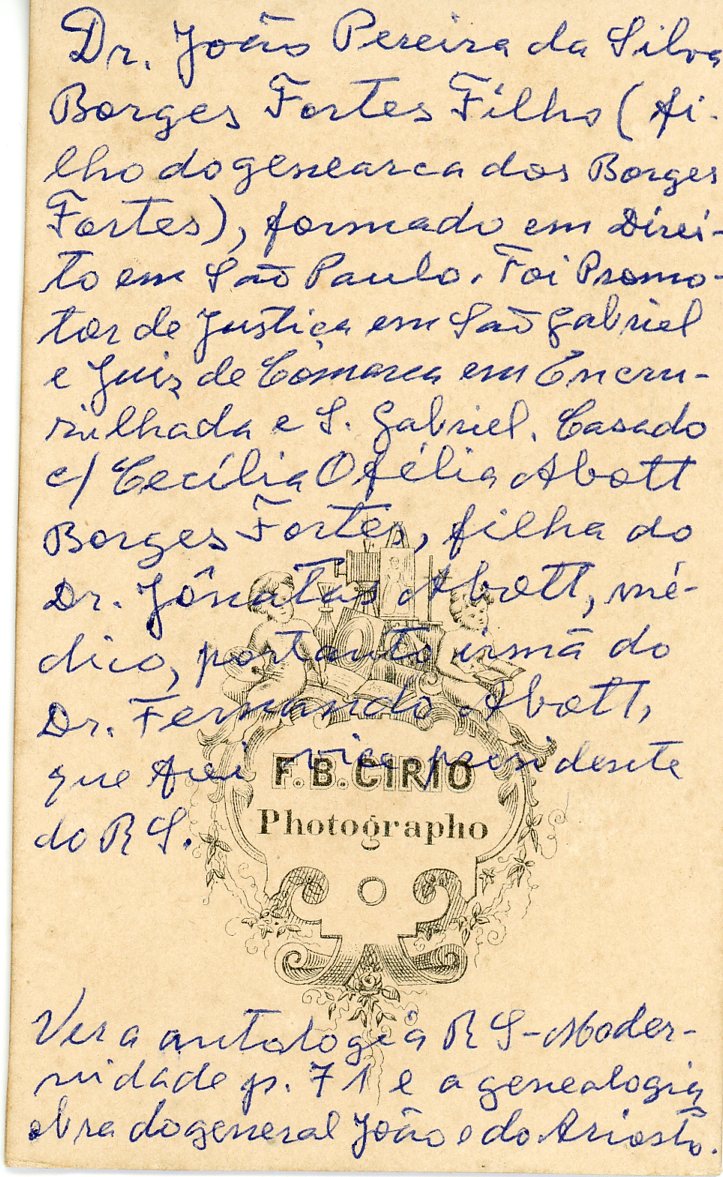 Dr. João Pereira da Silva
Borges Fortes Filho (fi-
lho do genearca dos Borges
Fortes), formado em Direi-
to em São Paulo. Foi Promo-
tor de Justiça em São Gabriel
e Juiz de Cômarca em Encru-
zilhada e S. Gabriel. Casado
c/ Cecília Ofélia Abott
Borges Fortes, filha do
Dr. Jônatas Abott, mé-
dico, portanto irmã do
Dr. Fernando Abott,
que foi vice presidente
F. B. CIRIO
Photographo
do RS.
Ver a antologia RS-Moder-
nidade p. 71 e a genealogia
obra do general João e do Ariosto.